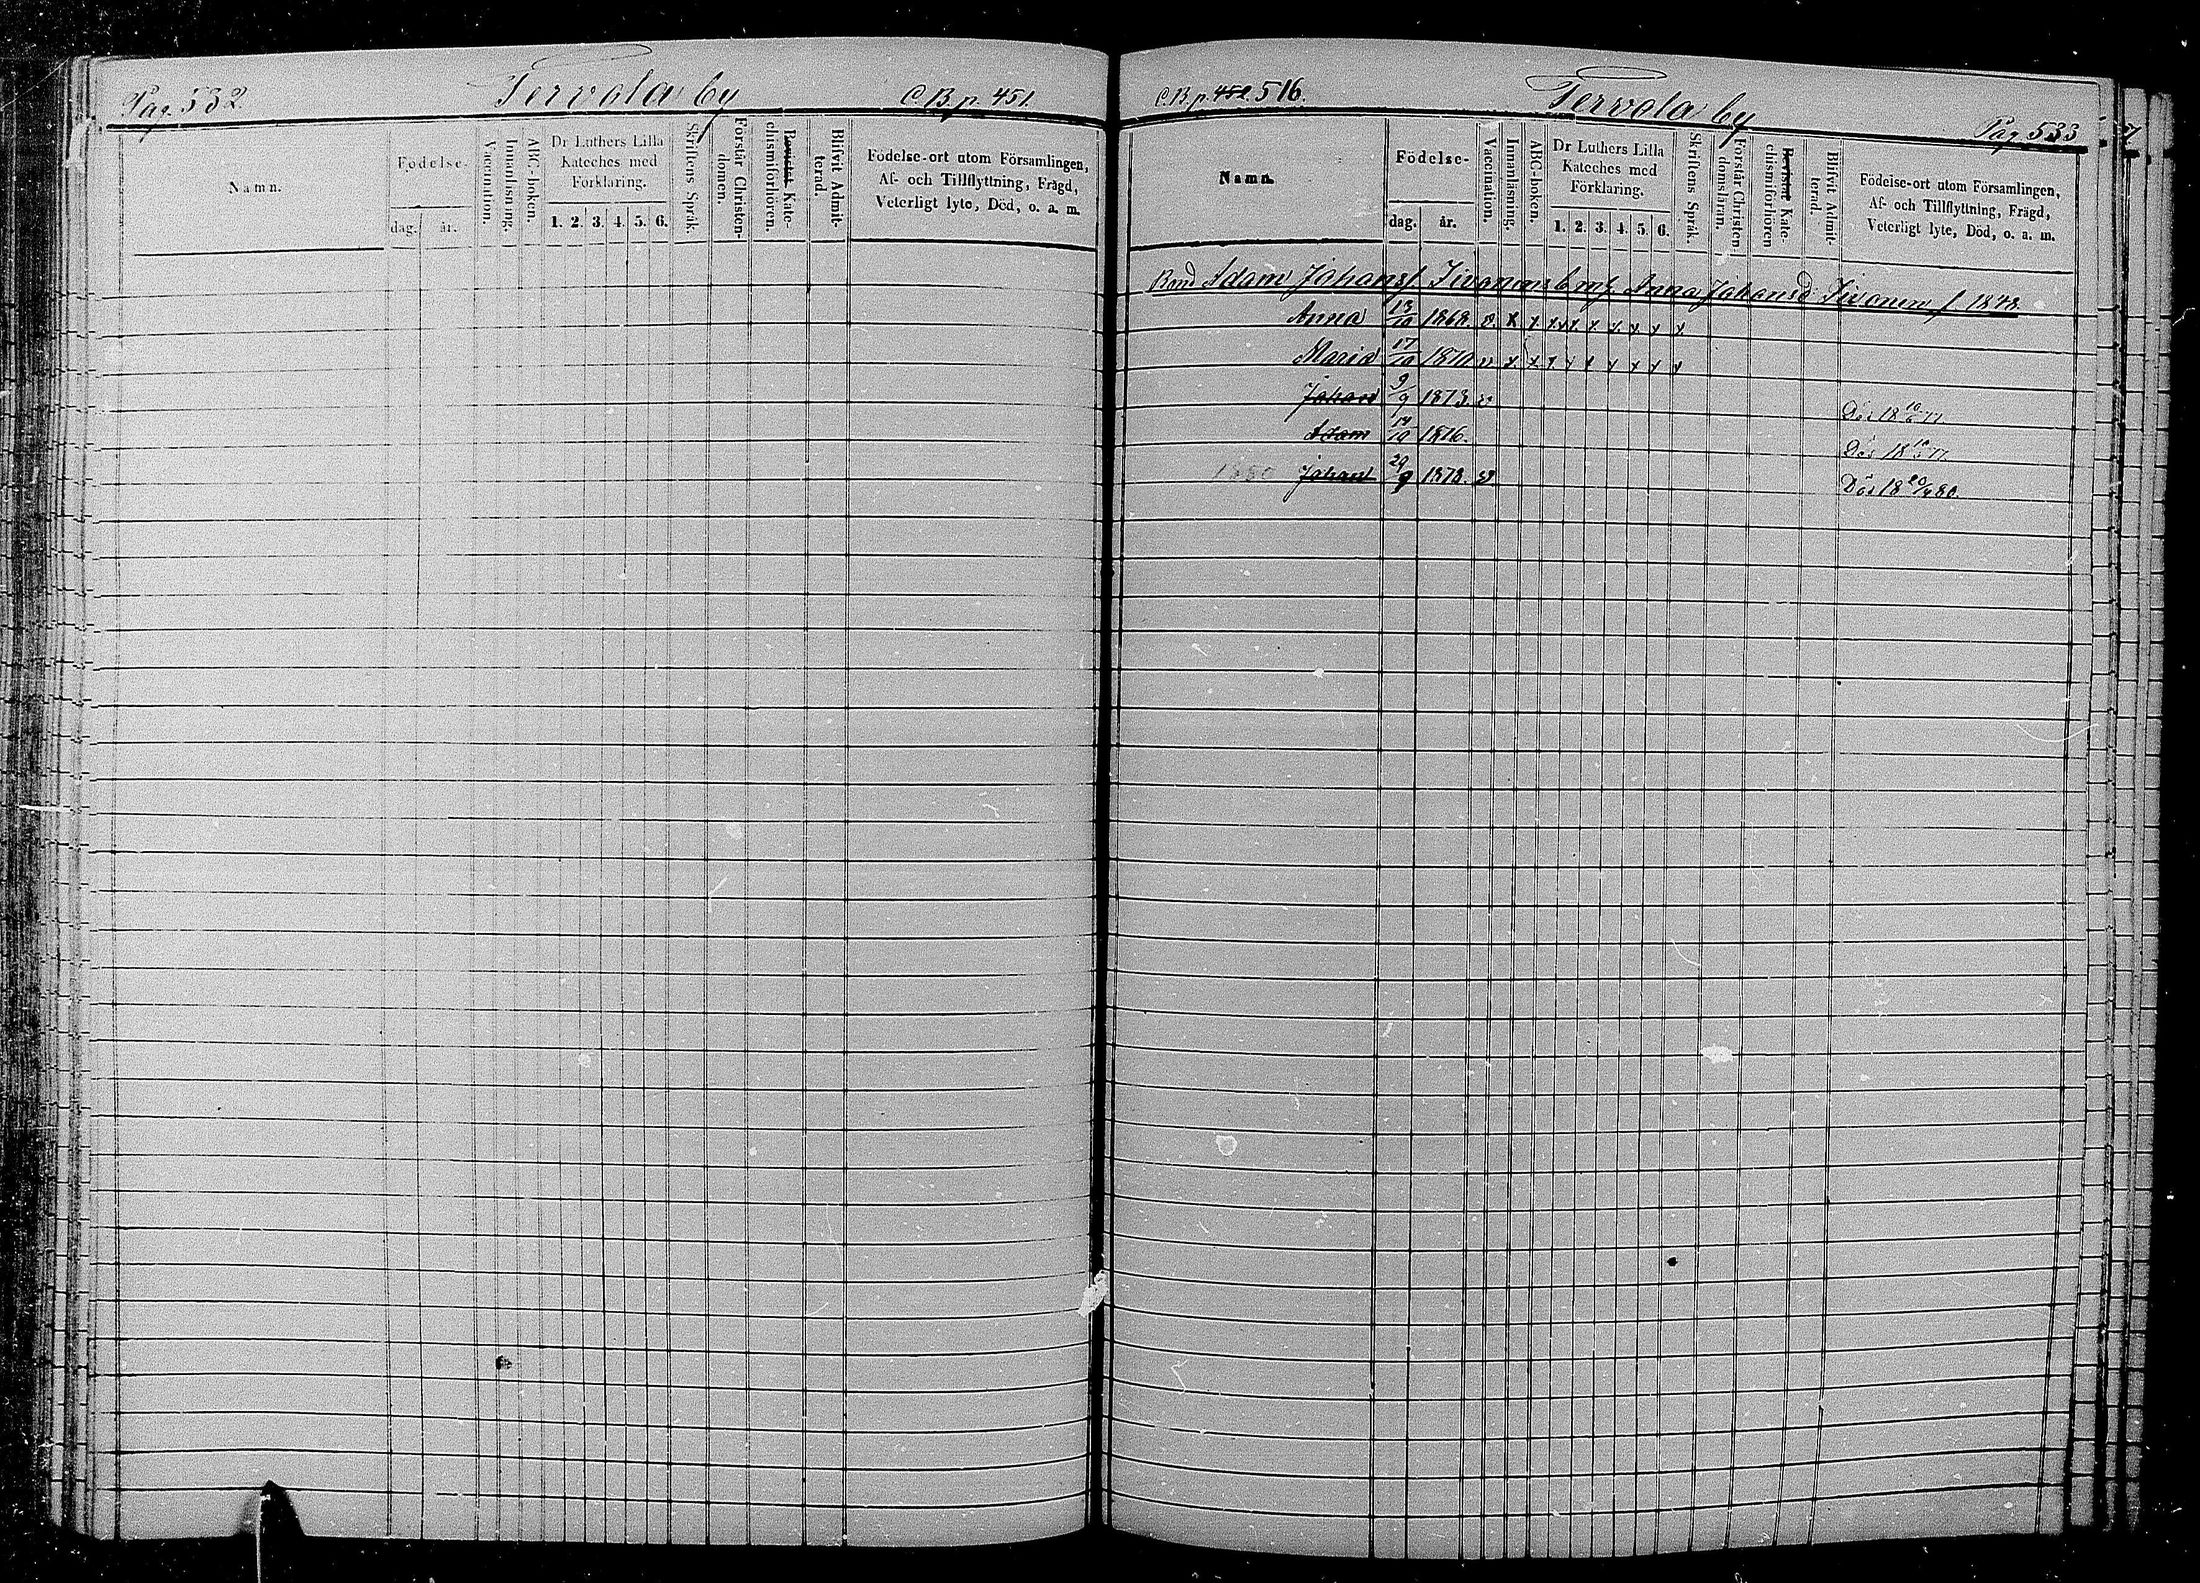 Pag. 532. Tervola by C.B.p. 451.
Namn. Födelse- dag. år. Vaccination. Innanläsning. ABC-boken. Dr Luthers Lilla Kateches med Förklaring. 1. 2. 3. 4. 5. 6. Skriftens Språk. Förstår Christendomen. Bevistat Katechismiförhören. Blifvit Admitterad. Födelse-ort utom Församlingen, Af- och Tillflyttning, Frägd, Veterligt lyte, Död, o. a. m.
C.B.p. 452. 516. Tervola by Pag. 533
Namn. Födelse- dag. år. Vaccination. Innanläsning. ABC-boken. Dr Luthers Lilla Kateches med Förklaring. 1. 2. 3. 4. 5. 6. Skriftens Språk. Förstår Christendomsläran. Bevistat Katechismiförhören Blifvit Admitterad. Födelse-ort utom Församlingen, Af- och Tillflyttning, Frägd, Veterligt lyte, Död, o. a. m.
Adam Johans Anna Johansd Sivonen f. 1848.
Anna 13/10 1868. v. x x x x x x x x x x
Maria 17/10 1870. v x. x x. x x x x x x
Johan 9/9 1873. v Dös 18 77.
Adam 14/10 1876. Dös 18 77.
1880 Johan 29/9 1878. v Dös 18 20/4 80.